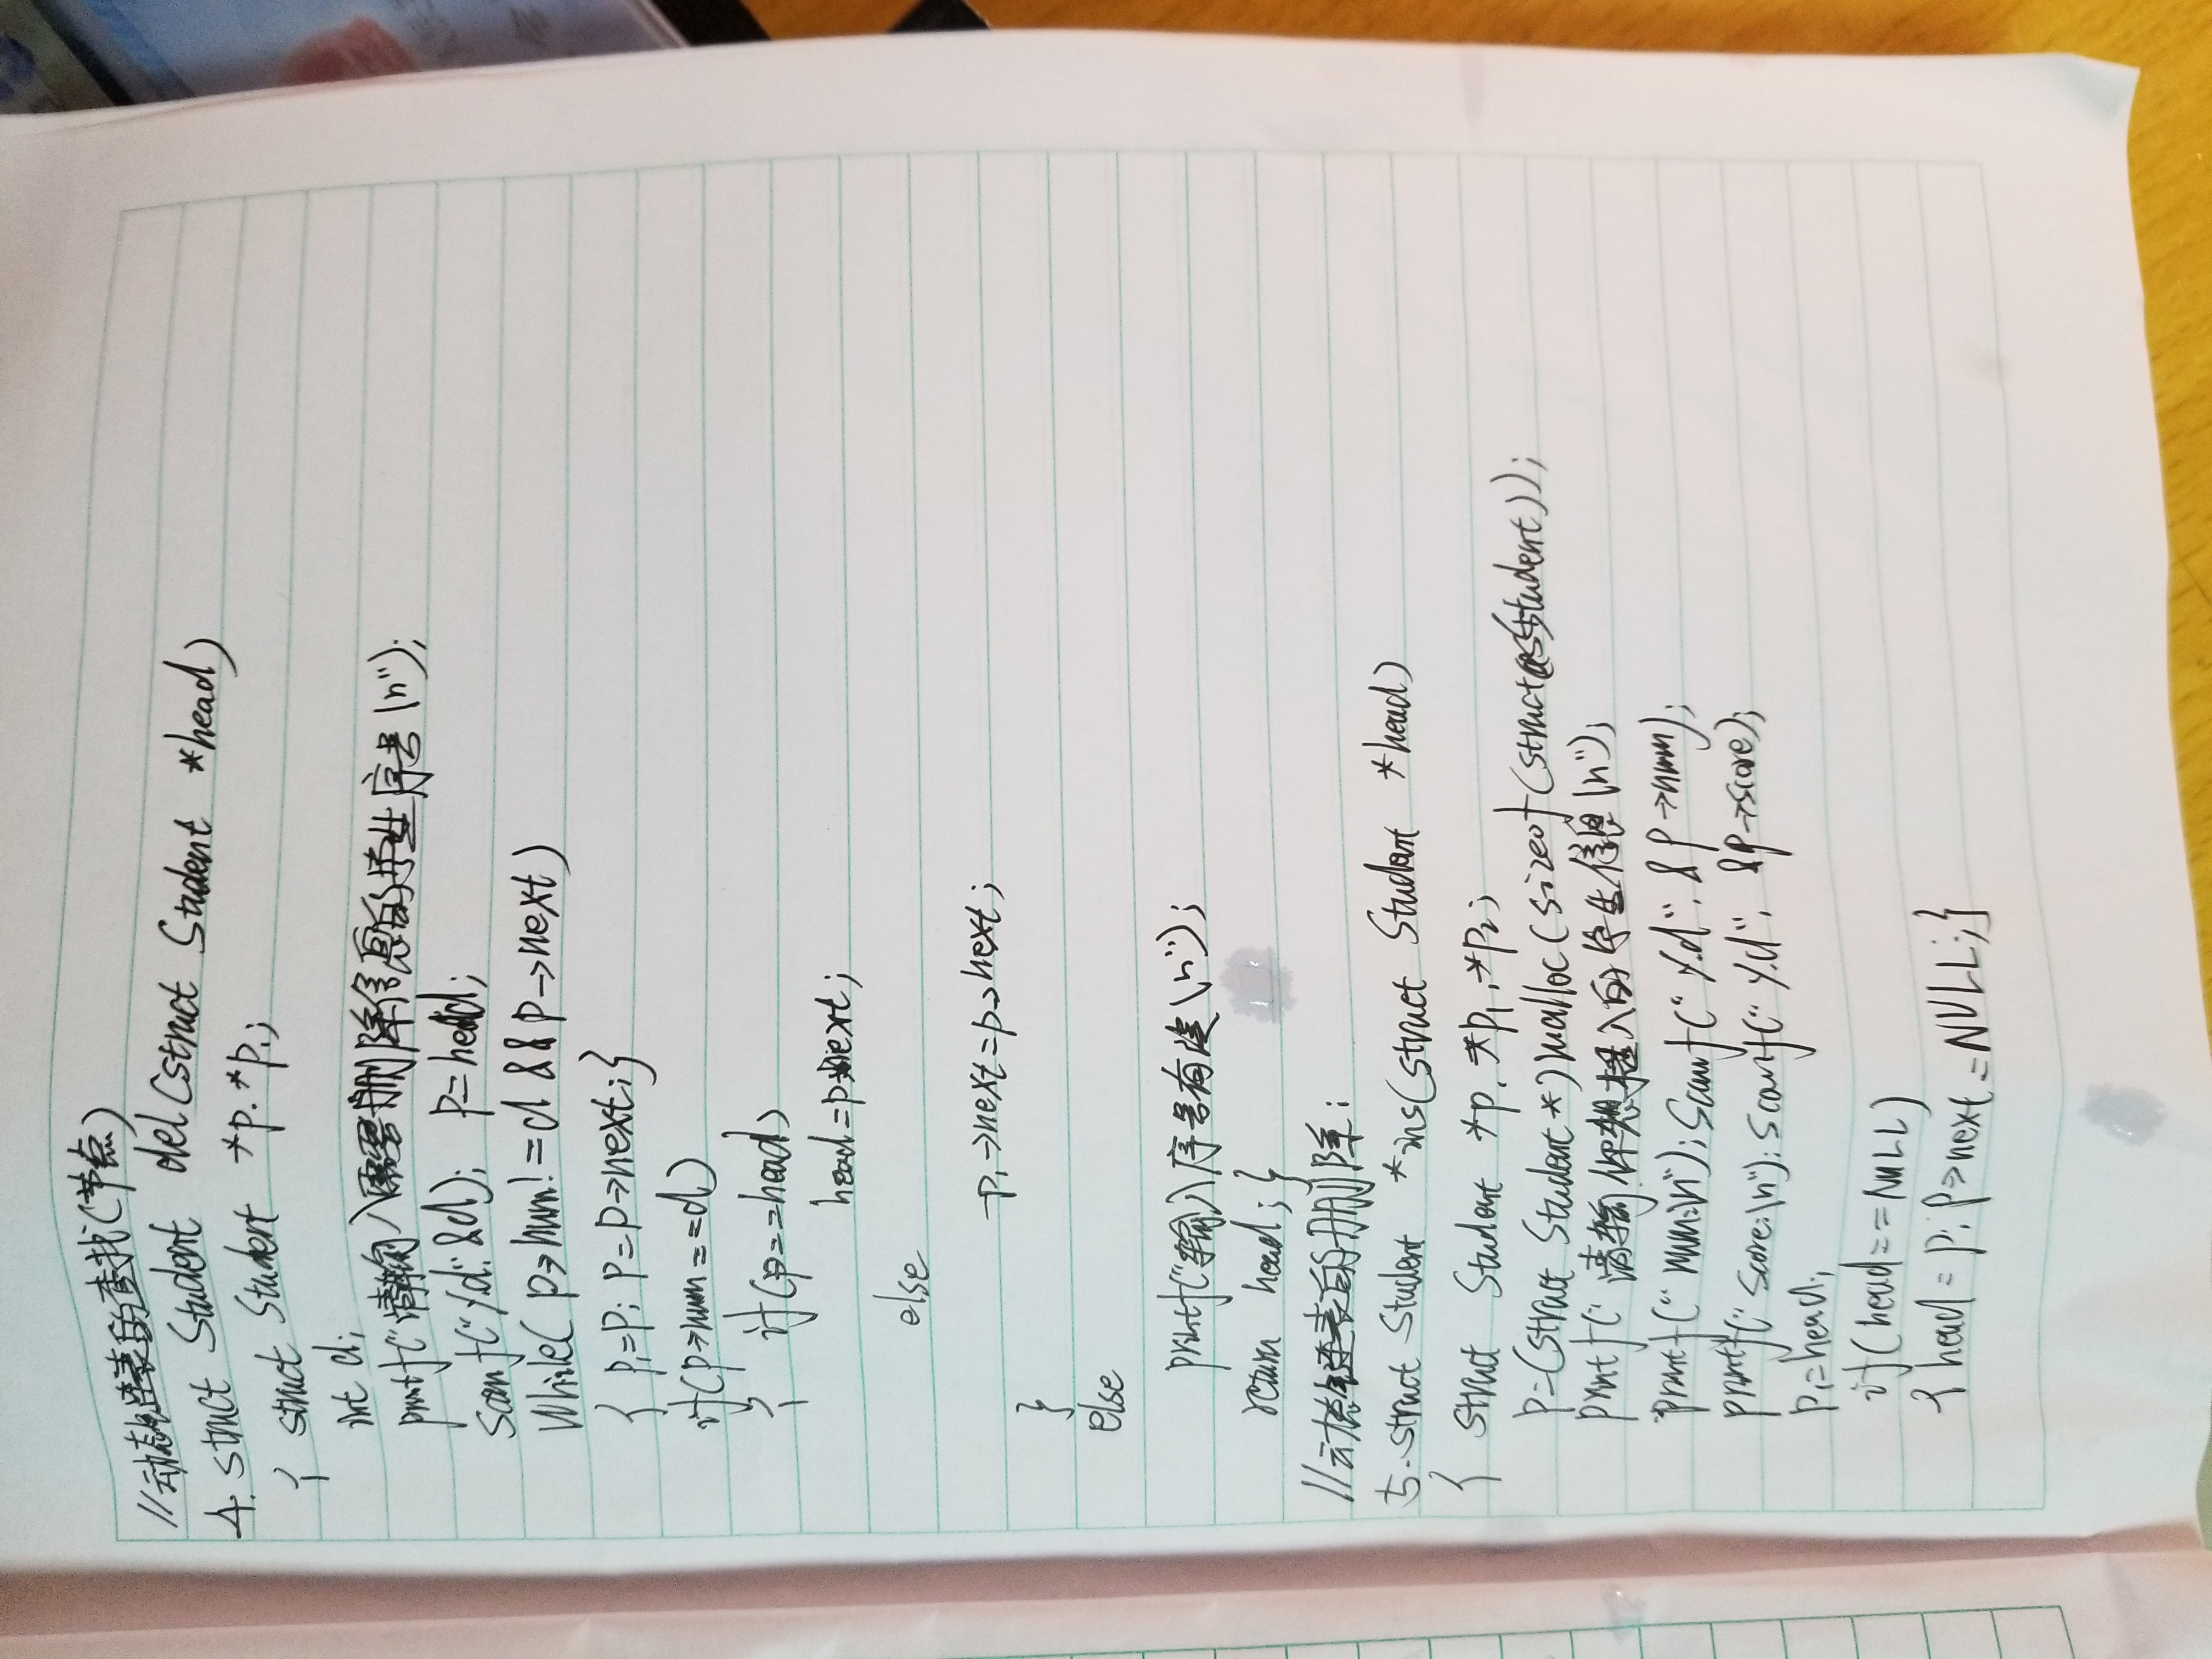 //动态链表的查找(节点)
4. struct Student del(struct Student *head)
{ struct Student *p, *p1;
int d;
printf("请输入需要删除信息的学生序号\n");
scanf("%d",&d); p=head;
while(p->num!=d && p->next)
{ p1=p; p=p->next;}
if(p->num==d)
{ if(p==head)
head=p->next;
else
p1->next=p->next;
}
else
printf("输入序号有误\n");
return head;}
//动态链表的删除:
5. struct Student *ins(struct Student *head)
{ struct Student *p, *p1, *p2;
p=(struct Student*)malloc(sizeof(struct Student));
printf("请输你想插入的学生信息\n");
printf("num:\n"); scanf("%d", &p->num);
printf("score:\n"); scanf("%d", &p->score);
p1=head;
if(head==NULL)
{ head=p; p->next=NULL;}